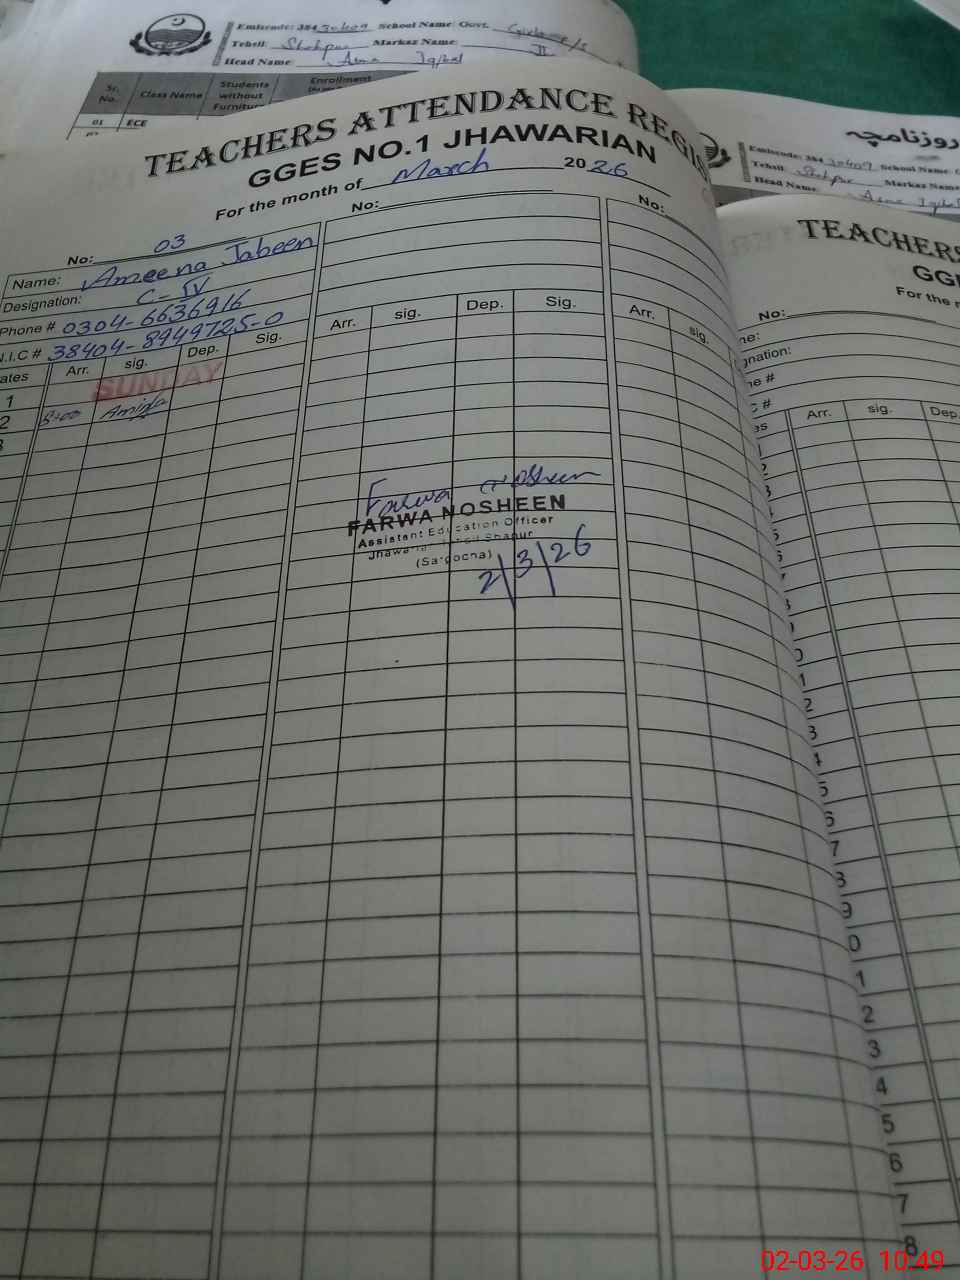 Emiscode: 384 30409 School Name: Govt.
Tehsil: Shahpur Markaz Name:
Head Name: Asma Iqbal
Sr. No. Class Name Students without Furniture Enrollment
01 ECE
TEACHERS ATTENDANCE REGIS
GGES NO.1 JHAWARIAN
For the month of March 2026
No: 03 No: No:
Name: Ameena Jabeen
Designation: C-IV
Phone # 0304-6636916
N.I.C # 38404-8949725-0
ates Arr. sig. Dep. Sig. Arr. sig. Dep. Sig. Arr. sig.
1 SUNDAY
2 8:00 Amina
3
Farwa Nosheen
FARWA NOSHEEN
Assistant Education Officer
Jhawarian Tehsil Shahpur
(Sargodha)
2/3/26
روزنامچہ
Emiscode: 384 30409 School Name:
Tehsil: Shahpur Markaz Name
Head Name: Asma Iqbal
TEACHERS
GGE
For the m
No:
me:
gnation:
ne #
C #
es Arr. sig. Dep.
1
2
3
4
5
6
7
8
9
0
1
2
3
4
5
6
7
8
9
0
1
2
3
4
5
6
7
8
02-03-26 10:49